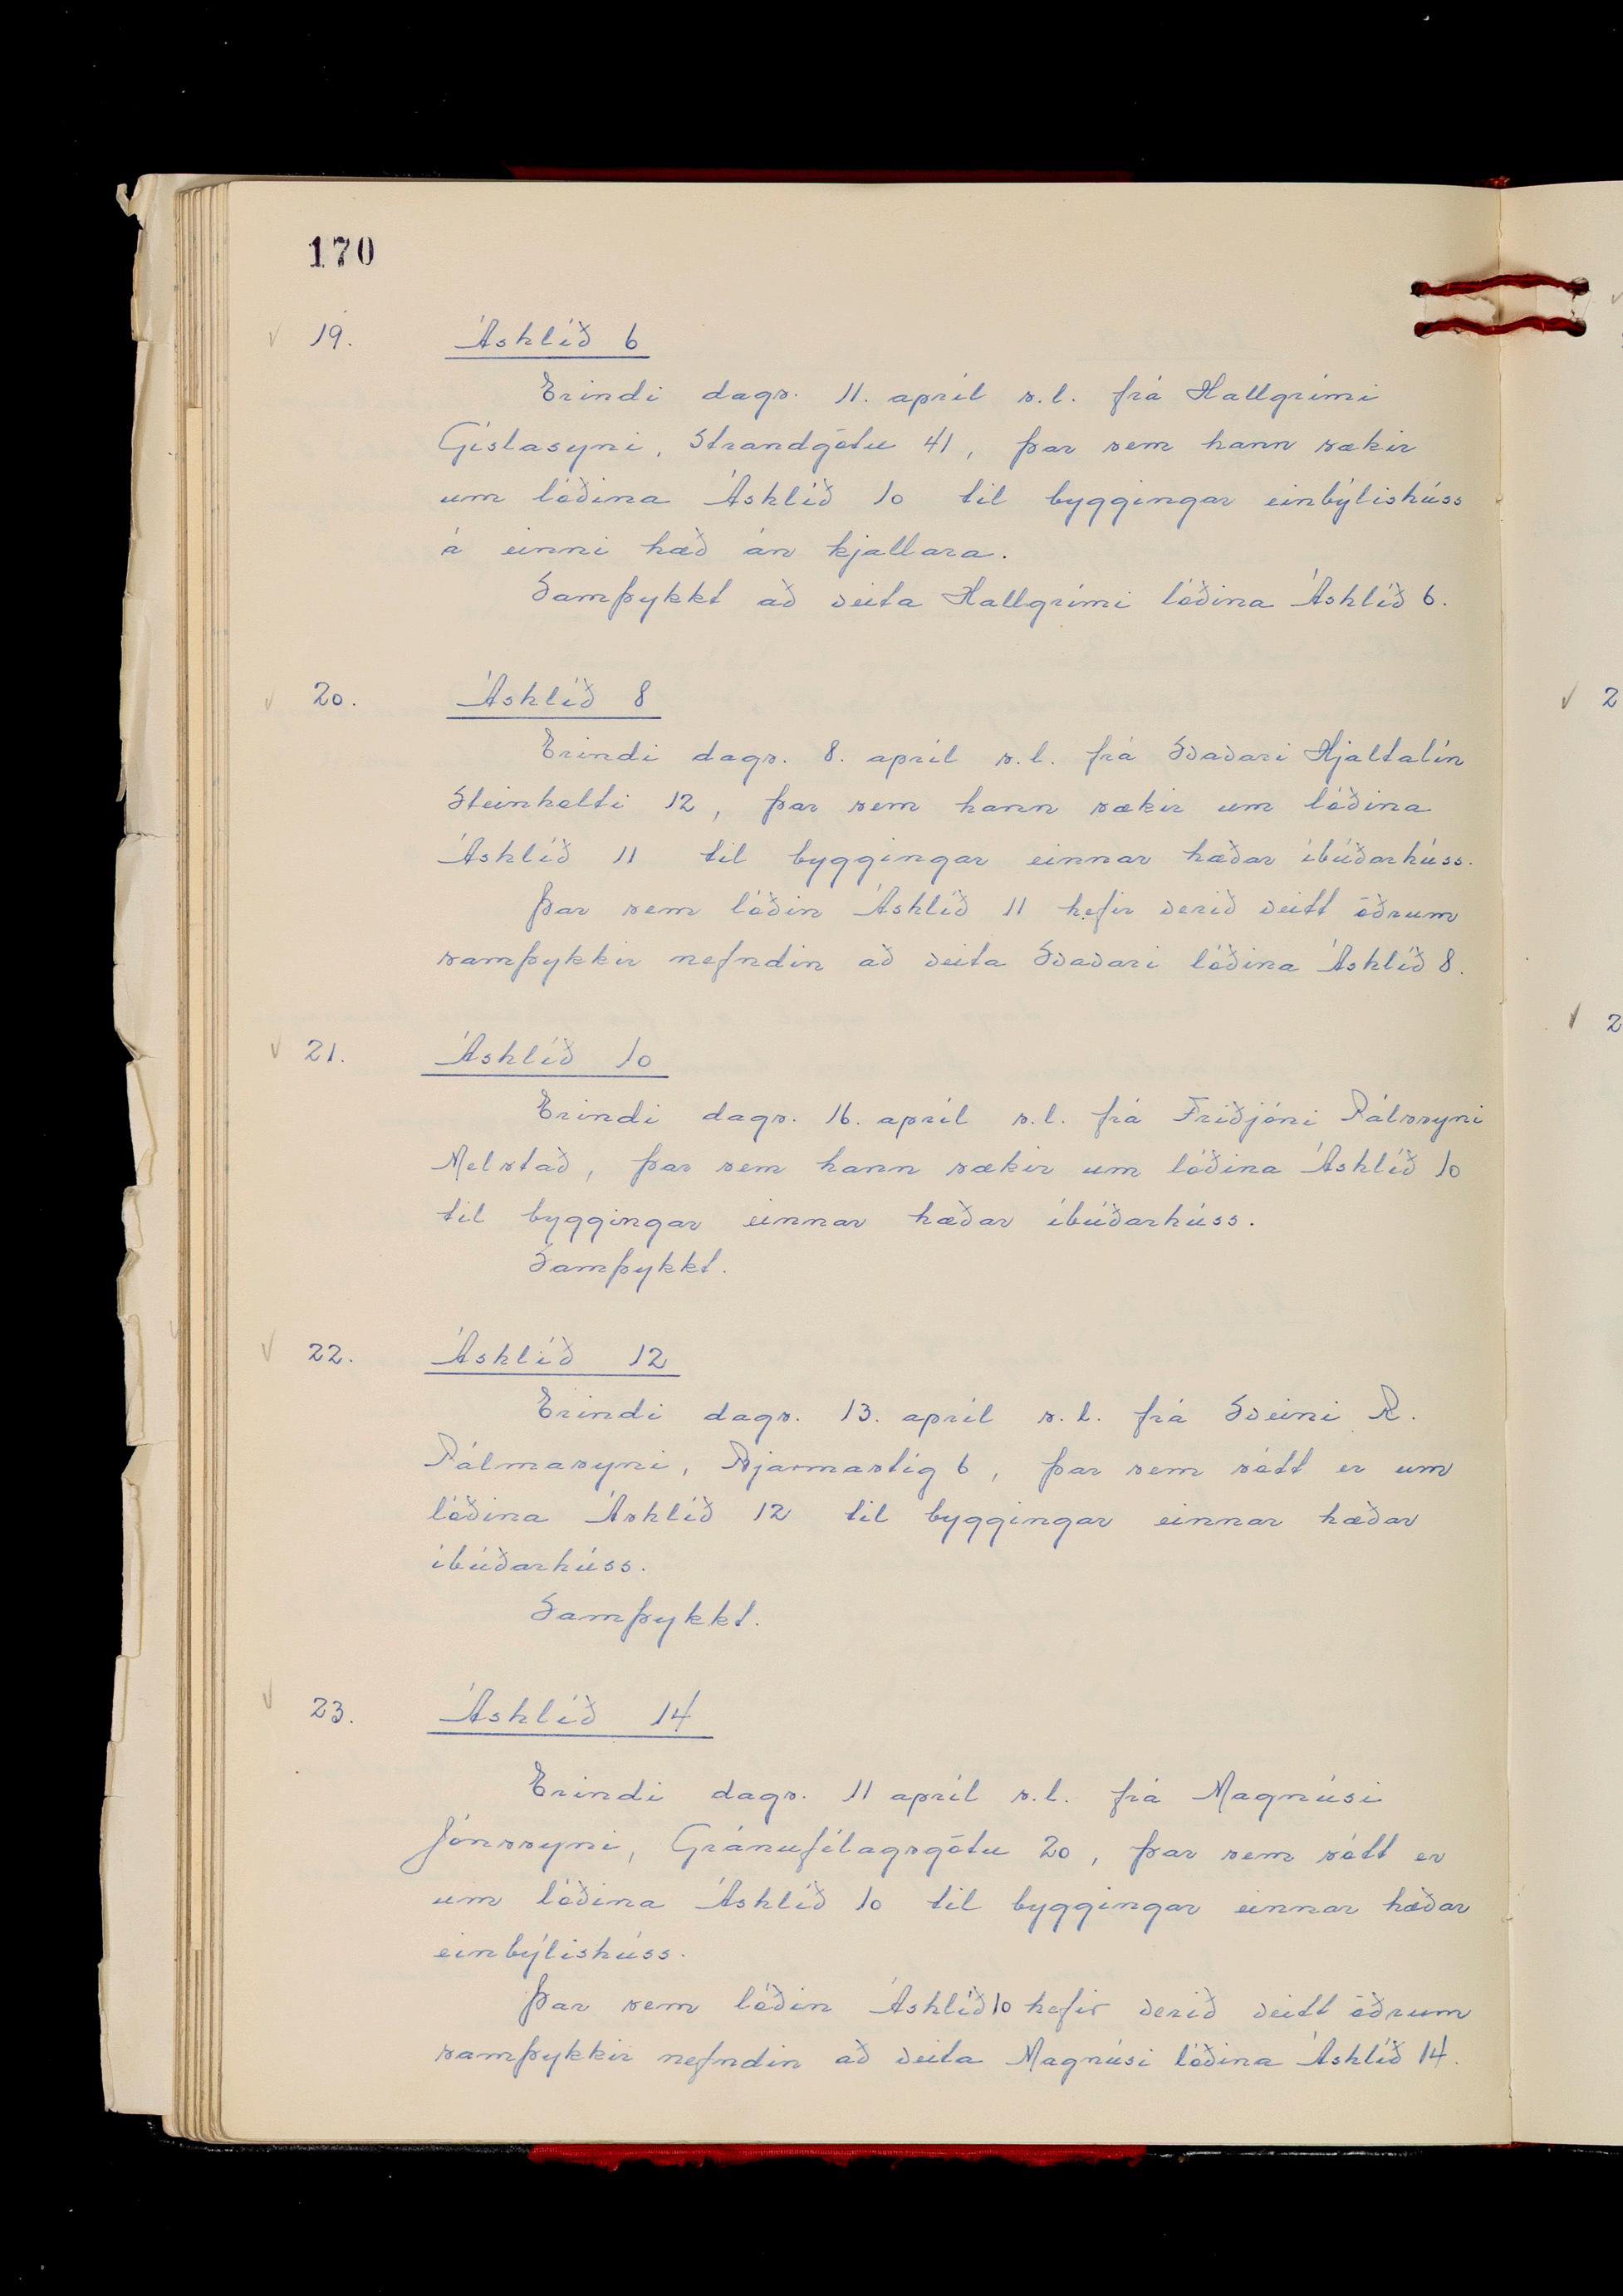 170
✓ 19. Áshlíð 6
Erindi dags. 11. apríl s.l. frá Hallgrími
Gíslasyni, Strandgötu 41, þar sem hann sækir
um lóðina Áshlíð 10 til byggingar einbýlishúss
á einni hæð án kjallara.
Samþykkt að veita Hallgrími lóðina Áshlíð 6.
✓ 20. Áshlíð 8
Erindi dags. 8. apríl s.l. frá Svavari Hjaltalín
Steinholti 12, þar sem hann sækir um lóðina
Áshlíð 11 til byggingar einnar hæðar íbúðarhúss.
Þar sem lóðin Áshlíð 11 hefir verið veitt öðrum
samþykkir nefndin að veita Svavari lóðina Áshlíð 8.
✓ 21. Áshlíð 10
Erindi dags. 16. apríl s.l. frá Friðjóni Pálssyni
Melstað, þar sem hann sækir um lóðina Áshlíð 10
til byggingar einnar hæðar íbúðarhúss.
Samþykkt.
✓ 22. Áshlíð 12
Erindi dags. 13. apríl s.l. frá Sveini R.
Pálmasyni, Bjarmastíg 6, þar sem sótt er um
lóðina Áshlíð 12 til byggingar einnar hæðar
íbúðarhúss.
Samþykkt.
✓ 23. Áshlíð 14
Erindi dags. 11 apríl s.l. frá Magnúsi
Jónssyni, Gránufélagsgötu 20, þar sem sótt er
um lóðina Áshlíð 10 til byggingar einnar hæðar
einbýlishúss.
Þar sem lóðin Áshlíð 10 hefir verið veitt öðrum
samþykkir nefndin að veita Magnúsi lóðina Áshlíð 14.
✓ 2
✓ 2